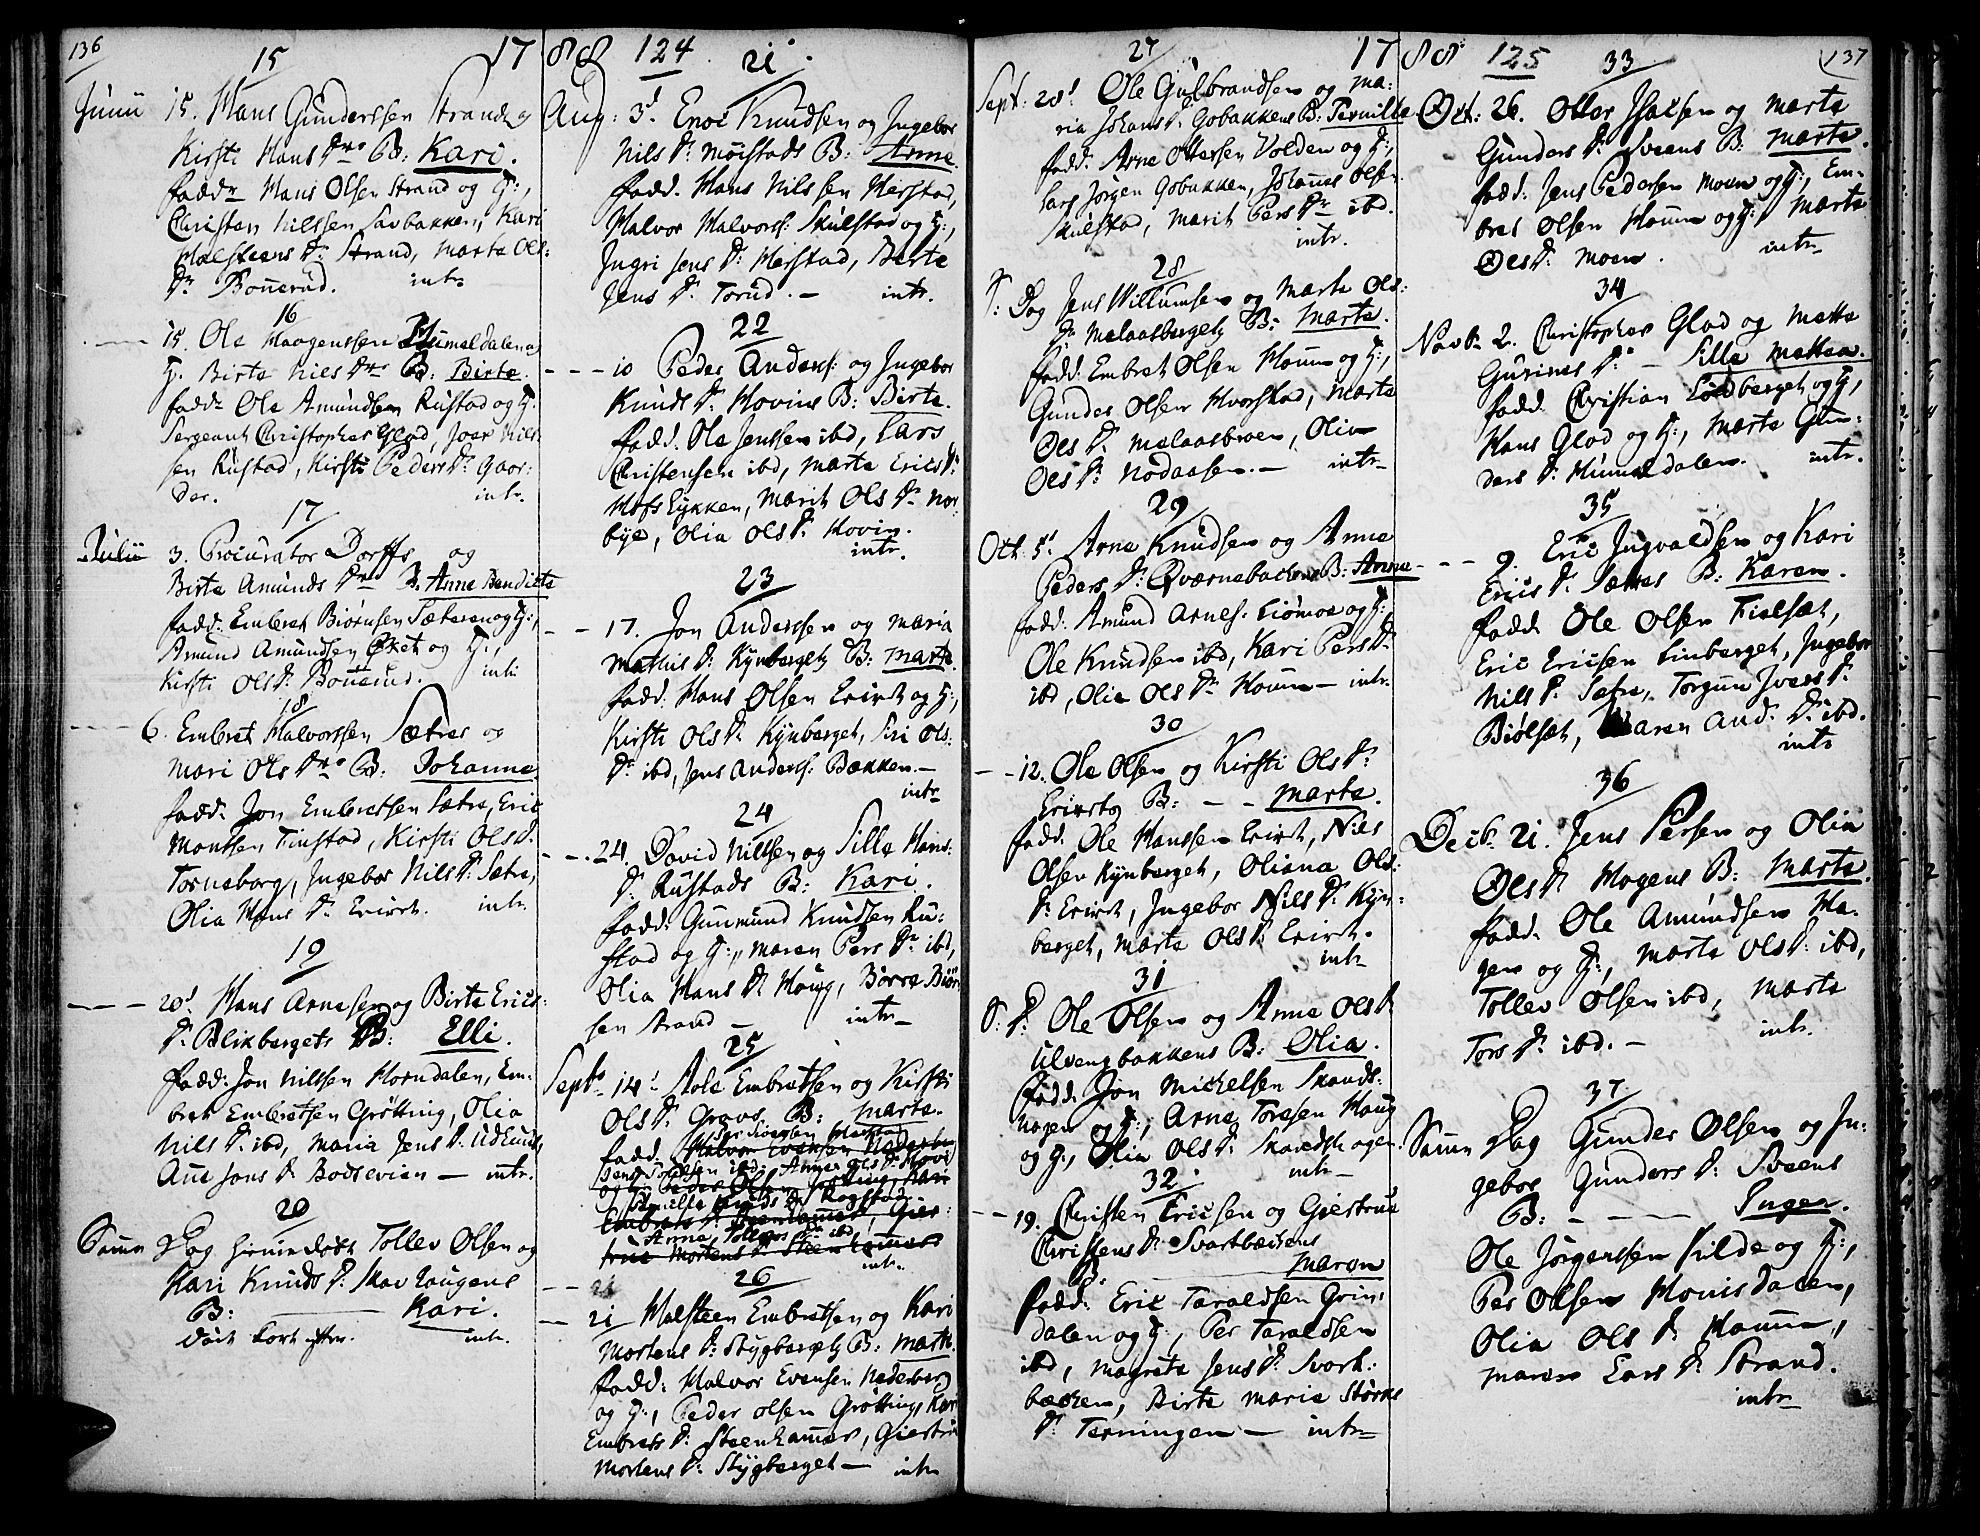 136
15
17
Junii 15. Hans Gunderssen Strand og
Kirsti Hans Dr. B: Kari.
fadd. Hans Olsen Strand og H:,
Christen Nilssen Savbakken, Kari
Halsteens D: Strand, Marte Ols:
D: Bonnerud. intr.
16
15. Ole Haagenssen Humeldalen og
H: Birte Nils Dr. B: Birte.
fadd. Ole Amundsen Rustad og H:
Sergeant Christopher Glad, Joar Nils:
sen Rustad, Kirsti Peders D: Gaar:
der. intr.
17
Julii 3. Procurator Dorffs og
Birte Amunds Dr B: Anne Bendicte
fadd. Embret Biørnsen Sæteren og H:,
Amund Amundsen Øket og H:,
Kirsti Ols D: Bonnerud. intr.
18
6. Embret Halvorssen Sætres og
Mari Ols Dr. B: Johanne.
fadd. Jon Embretsen Sætre, Eric
Montsen Finstad, Kirsti Ols D:
Torneborg, Ingebor Nils D: Sætre,
Olia Hans D: Evirst. intr.
19
20d Hans Arnesen og Birte Erics:
D: Blikbergets B: Elli.
fadd: Jon Nilssen Horndalen, Em:
bret Embretsen Grötting, Olia
Nils D: ibd, Maria Jens D: Udlund,
Ane Jons D: Bodsevien — intr.
20
Samme Dag hiemedøbt Tollev Olsen og
Kari Knuds D: Skavhaugens
B: Kari.
døde kort efter. intr.
88 124
21
Aug: 3d Enoc Knudsen og Ingebor
Nils D: Möistads B: Anne.
fadd. Hans Nilssen Herstad,
Halvor Halvors: Skulstad og H:,
Ingri Jens D: Herstad, Berte
Jens D: Torud. — intr.
22
10 Peder Anders: og Ingebor
Knuds D: Hovins B: Birte.
fadd. Ole Jenssen ibd, Lars
Christensen ibd, Marte Erics D:
Hofs Eykken, Marit Ols D: Nor:
bye, Olia Ols D: Hovin.
intr.
23
17. Jon Anderssen og Maria
Mathis D: Kynbergets B: Marte.
fadd: Hans Olsen Evirst og H:,
Kirsti Ols D: Kynberget, Siri Ols:
D: ibd, Jens Anders: Bakken. —
intr
24
24. David Nilssen og Sille Hans:
D: Rustads B: Kari.
fadd: Gunmund Knudsen Ru:
stad og H:, Maren Pers D: ibd,
Olia Hans D: Houg, Börre Biör:
sen Strand — intr
25
Sept. 14d Aole Embretsen og Kirsti
Ols D: Gravs. B: Marte.
fadd.
intr.
26
21 Halsteen Embretsen og Kari
Mortens D: Stygbergets B: Marte.
fadd: Halvor Evensen Nederberg
og H:, Peder Olsen Grötting, Kari
Embrets D: Steenhamer, Giertru
Mortens D: Stygberget — intr
27
17
Sept: 28d Ole Gulbrandsen og Ma:
ria Johans D: Gobakkens B: Pernille
fadd. Arne Ottersen Volden og H:,
Lars Jörgen Gobakken, Johannes Olsen
Skulstad, Marit Pers D: ibd.
intr.
28
S: Dag Jens Willumsen og Marte Ols:
D: Melaasbergets B: Marte.
fadd: Embret Olsen Houm og H:,
Gunder Olsen Hvorstad, Marte
Oles D: Melaasbroen, Olia
Oles D: Nodaasen. — intr
29
Oct: 5d Arne Knudsen og Anne
Peders D: Qværnebackens B: Anne
fadd. Amund Arnes: Liömoe og H:,
Ole Knudsen ibd, Kari Pers D:
ibd, Olia Ols D: Houm — intr
30
12. Ole Olsen og Kirsti Ols D:
Evirsts B: — Marte.
fadd. Ole Hanssen Evirst, Nils
Olsen Kynberget, Oliana Ols:
D: Evirst, Ingebor Nils D: Kyn:
berget, Marte Ols D: Evirst.
intr
31
S: D: Ole Olsen og Anne Ols D:
Ulvengbakkens B: Olia.
fadd. Jon Michelsen Skands:
hagen og H:, Arne Toresen Houg
og H:, Olia Ols D: Skandshagen.
intr
32
19. Christen Ericsen og Giertrue
Christens D: Svartbækens
B. Maren
fadd. Eric Taraldsen Grin:
dalen og H:, Per Taraldsen
ibd, Magrete Jens D: Svart:
becken, Birte Marie Störks
D: Terningen — intr
88 125
137
33
Oct: 26. Otter Isacsen og Marte
Gunders D: Sveens B: Marte.
fadd. Jens Pedersen Moen og H:, Em:
bret Olsen Houm og H:, Marte
Oles D: Moen. intr
34
Novbr. 2. Christopher Glad og Mette
Gurines D: — Sille Mettea.
fadd. Christian Lindberget og H:,
Hans Glad og H:, Marte Gun:
ders D: Humeldalen. intr.
35
9. Eric Ingvaldsen og Kari
Erics D: Sætres B: Karen.
fadd. Ole Olsen Fielsæt,
Eric Ericsen Linberget, Ingebor
Nils D: Sætre, Torgun Ivers D:
Biölset, Maren And: D: ibd.
intr
36
Decbr. 21. Jens Persen og Olia
Oles D: Hagens B: Marte.
fadd. Ole Amundsen Ha:
gen og H:, Marte Ols D: ibd,
Tollev Olsen ibd, Marte
Tors D: ibd. — intr.
37
Samme Dag Gunder Olsen og In:
gebor Gunders D: Sveens
B: — — Inger.
Ole Jörgenssen Kilde og H:,
Per Olsen Hornsdalen,
Olia Ols D: Houm,
Maren Lars D: Strand.
intr